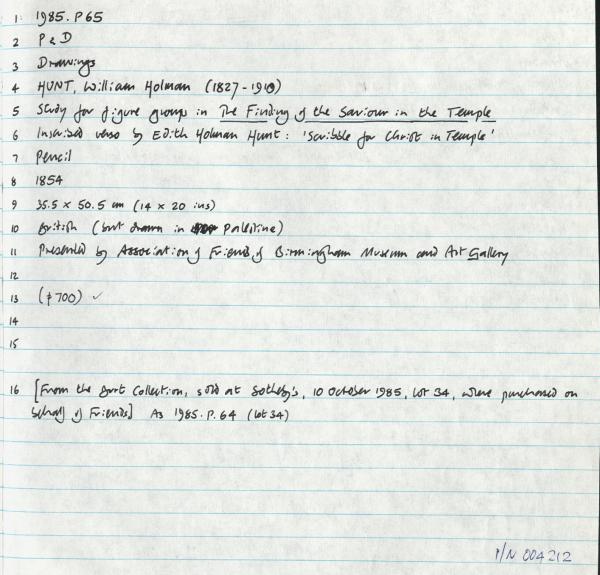 1 1985.P65
2 P & D
3 Drawings
4 HUNT, William Holman (1827-1910)
5 Study for figure groups in The Finding of the Saviour in the Temple
6 Inscribed verso by Edith Holman Hunt: 'Scribble for Christ in Temple'
7 Pencil
8 1854
9 35.5 x 50.5 cm (14 x 20 ins)
10 British (but drawn in Palestine)
11 Presented by Association of Friends of Birmingham Museum and Art Gallery
12
13 (£700) ✓
14
15
16 [From the Burt Collection, sold at Sotheby's, 10 October 1985, lot 34, where purchased on
behalf of Friends] As 1985.P.64 (lot 34)
P/N 004212